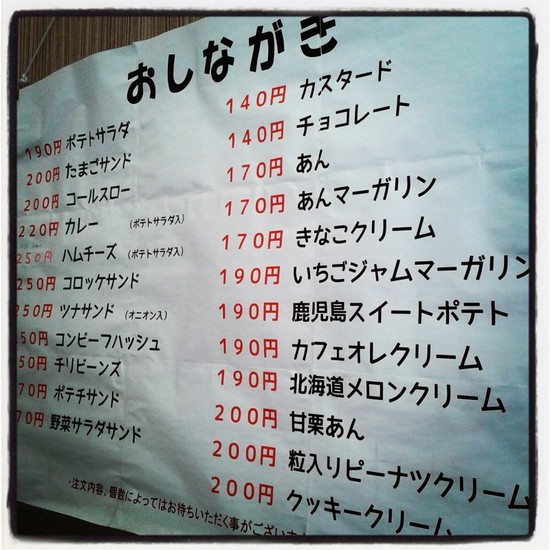 おしながき
190円 ポテトサラダ
200円 たまごサンド
200円 コールスロー
220円 カレー (ポテトサラダ入)
250円 ハムチーズ (ポテトサラダ入)
250円 コロッケサンド
250円 ツナサンド (オニオン入)
50円 コンビーフハッシュ
50円 チリビーンズ
70円 ポテチサンド
70円 野菜サラダサンド
140円 カスタード
140円 チョコレート
170円 あん
170円 あんマーガリン
170円 きなこクリーム
190円 いちごジャムマーガリン
190円 鹿児島スイートポテト
190円 カフェオレクリーム
190円 北海道メロンクリーム
200円 甘栗あん
200円 粒入りピーナツクリーム
200円 クッキークリーム
・注文内容、個数によってはお待ちいただく事がございま